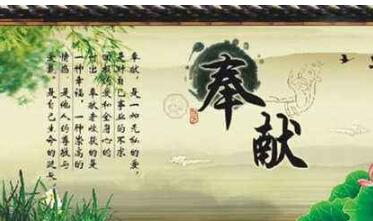 奉献
奉献,是一如无私的爱,
是对自己事业的不求
回报的爱和全身心的
付出。奉献者收获的是
一种幸福,一种崇高的
情感,是他人的尊敬与
爱戴,是自己生命的延